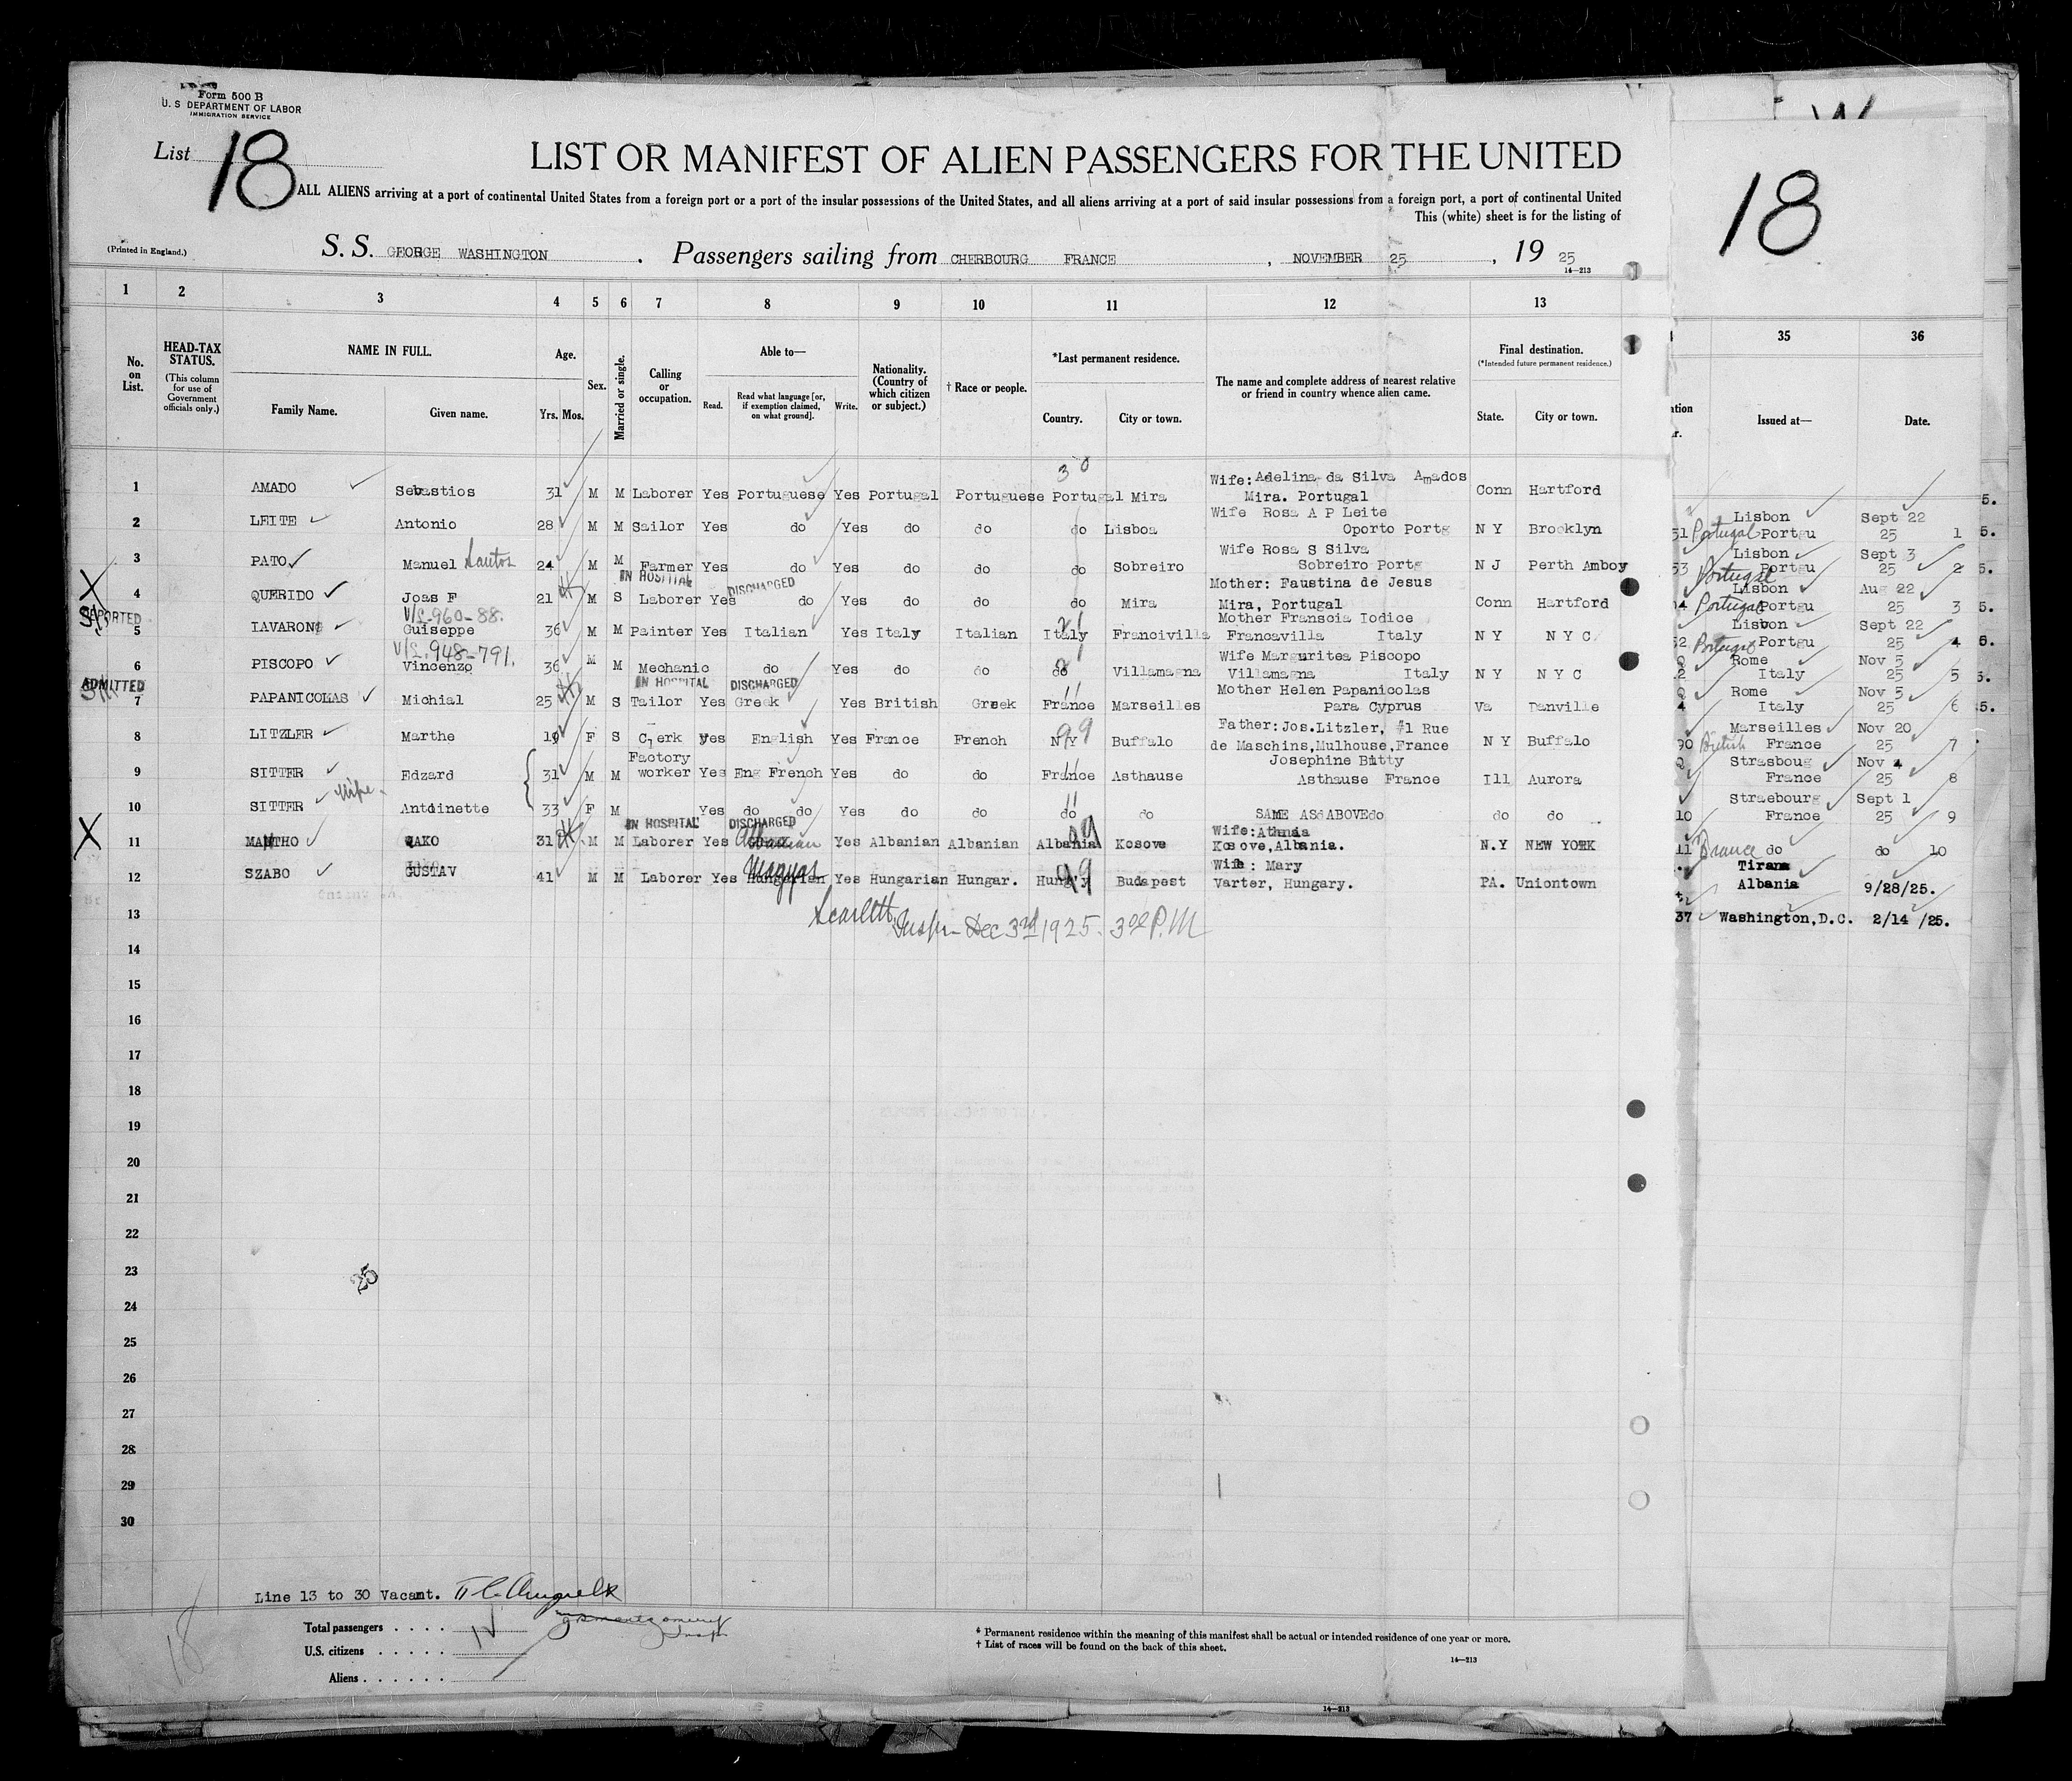 Form 500 B
U. S DEPARTMENT OF LABOR
IMMIGRATION SERVICE
List 18
LIST OR MANIFEST OF ALIEN PASSENGERS FOR THE UNITED
ALL ALIENS arriving at a port of continental United States from a foreign port or a port of the insular possessions of the United States, and all aliens arriving at a port of said insular possessions from a foreign port, a port of continental United
This (white) sheet is for the listing of
(Printed in England.)
S. S. GEORGE WASHINGTON . Passengers sailing from CHERBOURG FRANCE , NOVEMBER 25 , 19 25
14—213
18
1 2 3 4 5 6 7 8 9 10 11 12 13
35 36
No. on List.
HEAD-TAX STATUS.
(This column for use of Government officials only.)
NAME IN FULL.
Family Name. Given name.
Age.
Yrs. Mos.
Sex.
Married or single.
Calling or occupation.
Able to—
Read. Read what language [or, if exemption claimed, on what ground]. Write.
Nationality. (Country of which citizen or subject.)
† Race or people.
*Last permanent residence.
Country. City or town.
The name and complete address of nearest relative or friend in country whence alien came.
Final destination.
(*Intended future permanent residence.)
State. City or town.
Issued at— Date.
30
1 AMADO Sebastios 31 M M Laborer Yes Portuguese Yes Portugal Portuguese Portugal Mira Wife: Adelina da Silva Amados Mira. Portugal Conn Hartford
2 LEITE Antonio 28 M M Sailor Yes do Yes do do do Lisboa Wife Rosa A P Leite Oporto Portg N Y Brooklyn
3 PATO Manuel Santos 24 M M Farmer Yes do Yes do do do Sobreiro Wife Rosa S Silva Sobreiro Portg N J Perth Amboy
IN HOSPITAL DISCHARGED
X 4 QUERIDO Joas F 21 M S Laborer Yes do Yes do do do Mira Mother: Faustina de Jesus Mira, Portugal Conn Hartford
V/L-960-88.
5 IAVARONE Guiseppe 36 M M Painter Yes Italian Yes Italy Italian Italy Francivilla Mother Franscia Iodice Francavilla Italy N Y N Y C
V/L.948-791.
6 PISCOPO Vincenzo 36 M M Mechanic do Yes do do do Villamagna Wife Marguritea Piscopo Villamagna Italy N Y N Y C
ADMITTED
IN HOSPITAL DISCHARGED
7 PAPANICOLAS Michial 25 M S Tailor Yes Greek Yes British Greek France Marseilles Mother Helen Papanicolas Para Cyprus Va Danville
8 LITZLER Marthe 19 F S Clerk yes English Yes France French N Y Buffalo Father: Jos.Litzler, #1 Rue de Maschins,Mulhouse,France N Y Buffalo
9 SITTER Edzard 31 M M Factory worker Yes Eng French Yes do do France Asthause Josephine Bitty Asthause France Ill Aurora
10 SITTER wife Antoinette 33 F M Yes do do Yes do do do do SAME AS ABOVE do do do
IN HOSPITAL DISCHARGED
X 11 MANTHO QAKO 31 M M Laborer Yes Albanian Yes Albanian Albanian Albania Kosove Wife: Kosove,Albania. N.Y NEW YORK
12 SZABO GUSTAV 41 M M Laborer Yes Magyar Hungarian Yes Hungarian Hungar. Hungry Budapest Wife: Mary Varter, Hungary. PA. Uniontown
Scarlett, Insp. Dec 3rd 1925. P.M
13
14
15
16
17
18
19
20
21
22
23
24
25
26
27
28
29
30
Lisbon Portgu Sept 22 25 1
Lisbon Portgu Sept 3 25 2
Lisbon Portgu Aug 22 25 3
Lisbon Portgu Sept 22 25 4
Rome Italy Nov 5 25 5
Rome Italy Nov 5 25 6
Marseilles France Nov 20 25 7
Strasboug France Nov 4 25 8
Straebourg France Sept 1 25 9
France do do 10
Tirana Albania 9/28/25.
37 Washington,D.C. 2/14 /25.
25
Line 13 to 30 Vacant.
Total passengers . . . .
U.S. citizens . . . . . .
Aliens . . . . . . .
* Permanent residence within the meaning of this manifest shall be actual or intended residence of one year or more.
† List of races will be found on the back of this sheet.
14—213
18
14—213